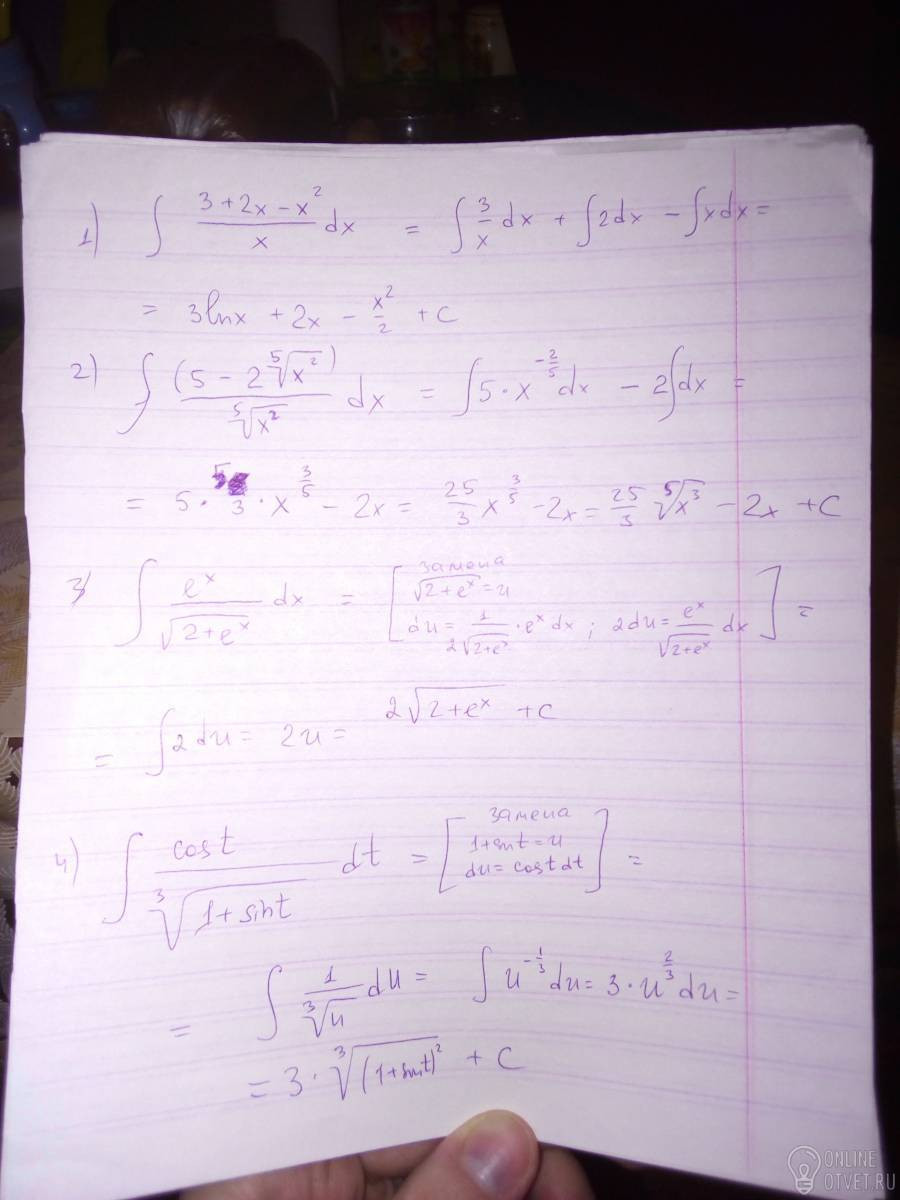 1) ∫ (3+2x-x²)/x dx = ∫ 3/x dx + ∫2dx - ∫xdx =
= 3lnx + 2x - x²/2 + C
2) ∫ (5-2⁵√x²)/⁵√x² dx = ∫5·x^(-2/5) dx - 2∫dx =
= 5·5/3·x^(3/5) - 2x = 25/3 x^(3/5) - 2x = 25/3 ⁵√x³ - 2x + C
3) ∫ e^x/√(2+e^x) dx = [замена
√(2+e^x) = u
du = 1/(2√(2+e^x))·e^x dx; 2du = e^x/√(2+e^x) dx] =
= ∫2du = 2u = 2√(2+e^x) + C
4) ∫ cost/³√(1+sint) dt = [замена
1+sint = u
du = cost dt] =
= ∫ 1/³√u du = ∫u^(-1/3) du = 3·u^(2/3) du =
= 3·³√(1+sint)² + C
ONLINE
OTVET.RU